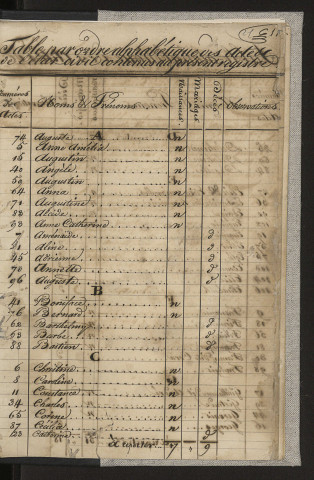 Table par ordre alphabétique des Actes
de l'état civil contenus au présent registre
Numéros des Actes Noms et Prénoms Naissances Mariages Décès Observations
A
74 Auguste n
5 Anne Amélie n
15 Augustin n
40 Angèle n
50 Augustin n
64 Anna n
71 Augustine n
82 Alcide n
Anne Catherine n
7 Aménaïde d
21 Aline d
45 Adrienne d
70 Annette d
96 Auguste d
B
41 Boniface n
76 Bernard n
62 Barthélemy d
Barbe d
88 Bastien d
C
6 Christine n
8 Caroline n
11 Constance n
34 Charles n
65 Corine n
87 Cécilia n
Catherine d
à reporter 17 " 9